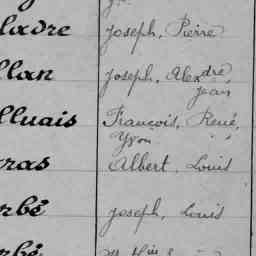 ladre Joseph, Pierre
llan Joseph, Alexdre
Jean
lluais François, René,
Yvon
ras Albert, Louis
rbé Joseph, Louis
rbé